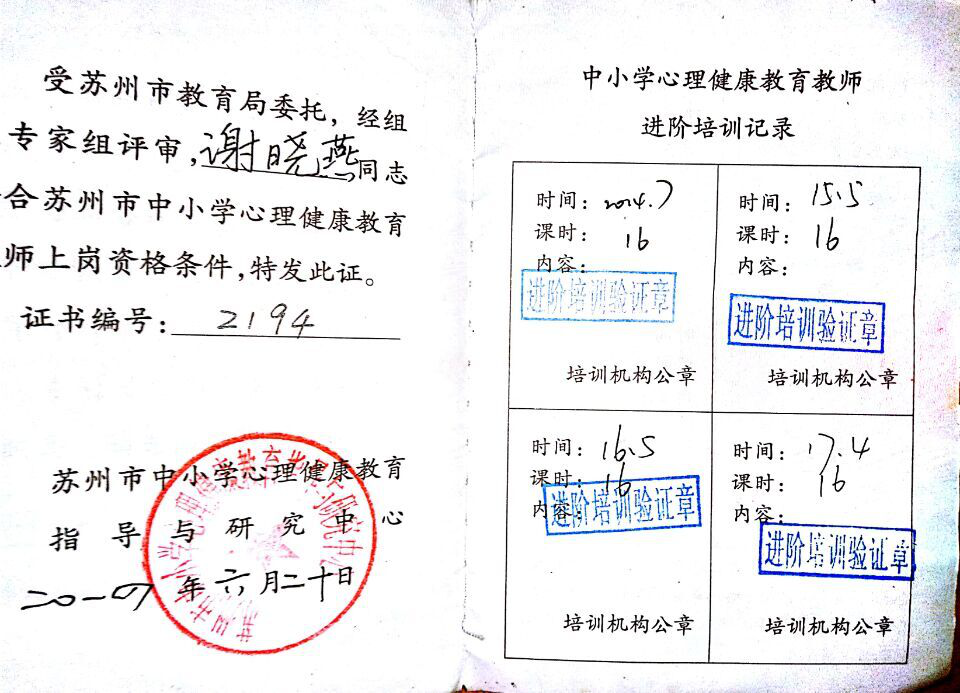 受苏州市教育局委托，经组
专家组评审，谢晓燕同志
合苏州市中小学心理健康教育
师上岗资格条件，特发此证。
证书编号：2194
苏州市中小学心理健康教育
指导与研究中心
年六月二十日
中小学心理健康教育教师
进阶培训记录
时间：2014.7
课时：16
内容：
进阶培训验证章
培训机构公章
时间：15.5
课时：16
内容：
进阶培训验证章
培训机构公章
时间：16.5
课时：16
内容：
进阶培训验证章
培训机构公章
时间：17.4
课时：16
内容：
进阶培训验证章
培训机构公章